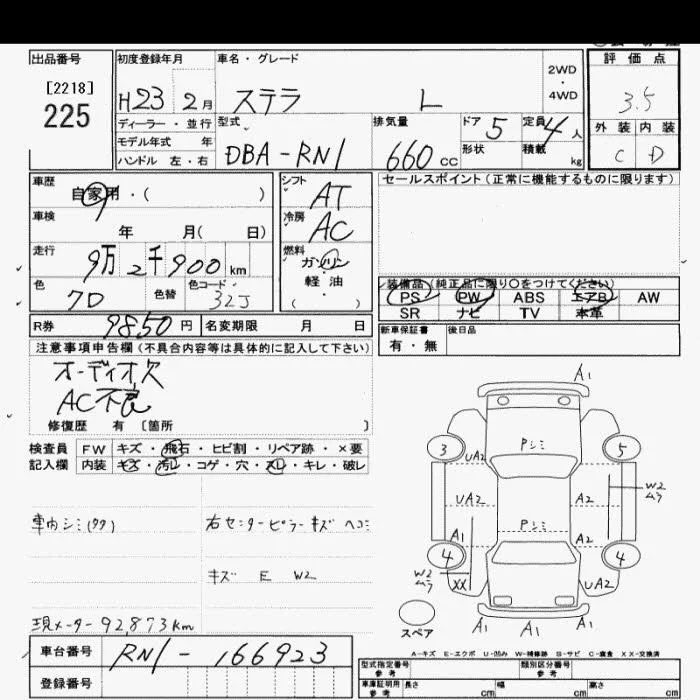 出品番号
[2218]
225
初度登録年月
H23 2月
車名・グレード
ステラ L
2WD
・
4WD
評価点
3.5
外装 内装
C D
ディーラー・並行
モデル年式 年
ハンドル 左・右
型式
DBA-RN1
排気量
660cc
ドア 5
形状
定員 4人
積載 kg
車歴
自家用・( )
車検
年 月( 日)
走行
9万2千900km
色
7D
色替
色コード
32J
シフト
AT
冷房
AC
燃料
ガソリン
軽油
( )
セールスポイント(正常に機能するものに限ります)
装備品(純正品に限り○をつけてください)
PS PW ABS エアB AW
SR ナビ TV 本革
新車保証書
有・無
後日品
R券 9850円 名変期限 月 日
注意事項申告欄(不具合内容等は具体的に記入して下さい)
オーディオ欠
AC不良
修復歴 有 〔箇所 〕
検査員
記入欄
FW キズ・飛石・ヒビ割・リペア跡・×要
内装 キズ・汚レ・コゲ・穴・スレ・キレ・破レ
車内シミ(タク)
右センターピラー キズ ヘコミ
キズ E W2
現メーター92,873km
車台番号 RN1-166923
登録番号
A1
3 Pシミ 5
UA2
W2
ムラ
UA2 A2
Pシミ
A1 A2
4 4
W2
ムラ
XX UA2
スペア
A1 A1 A1
A-キズ E-エクボ U-凹み W-補修跡 S-サビ C-腐食 XX-交換済
型式指定番号
参考
類別区分番号
参考
車庫証明用
参考
長さ cm 幅 cm 高さ cm